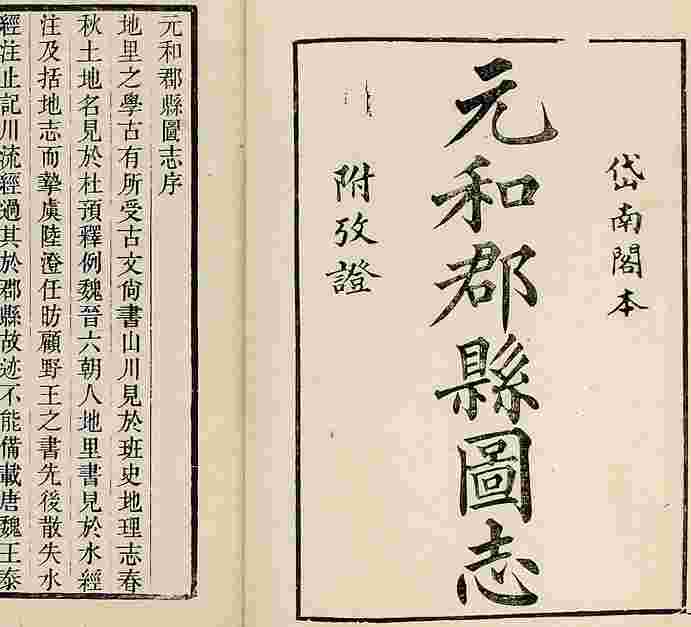 岱南閣本
元和郡縣圖志
附攷證
元和郡縣圖志序
地里之學古有所受古文尙書山川見於班史地理志春
秋土地名見於杜預釋例魏晉六朝人地里書見於水經
注及括地志而摯虞陸澄任昉顧野王之書先後散失水
經注止記川流經過其於郡縣故迹不能備載唐魏王泰